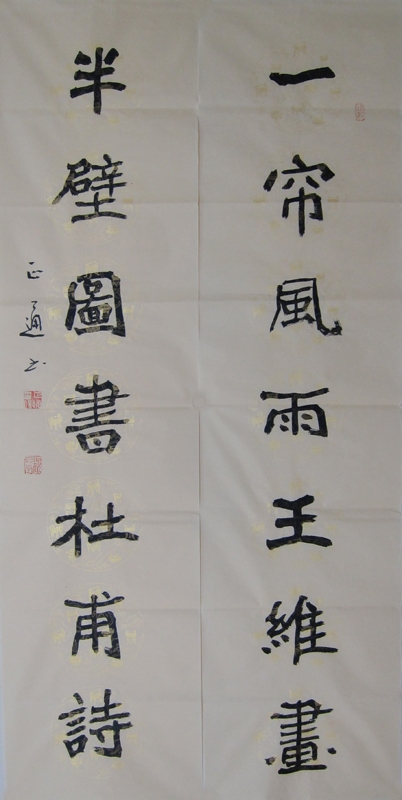 一帘風雨王維畫
半壁圖書杜甫詩
正通书